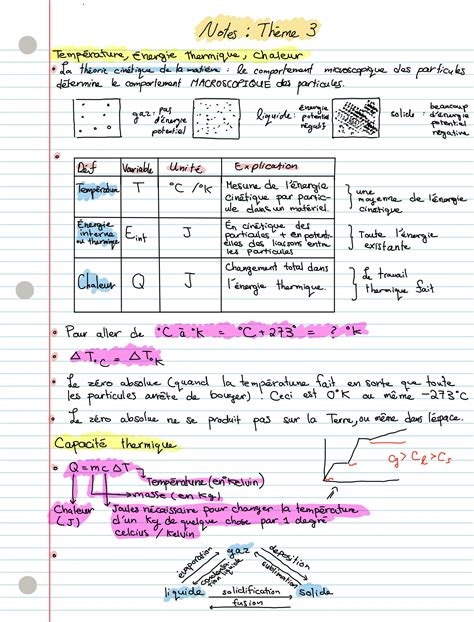 Notes : Thème 3
Température, Énergie thermique, Chaleur
• La théorie cinétique de la matière : le comportement microscopique des particules
détermine le comportement MACROSCOPIQUE des particules.
gaz : pas d'énergie potentiel
liquide : énergie potentiel négatif
solide : beaucoup d'énergie potentiel négative
Déf Variable Unité Explication
Température T °C/°K Mesure de l'énergie cinétique par particule dans un matériel. } une moyenne de l'énergie cinétique
Énergie interne ou thermique Eint J En cinétique des particules + en potentielles des liaisons entre les particules } Toute l'énergie existante
Chaleur Q J Changement total dans l'énergie thermique. } Le travail thermique fait
• Pour aller de °C à °K = °C + 273° = ? °K
• ΔT°C = ΔT°K
• Le zéro absolue (quand la température fait en sorte que toute
les particules arrête de bouger) ! Ceci est 0°K ou même -273°C
• Le zéro absolue ne se produit pas sur la Terre, ou même dans l'éspace.
Capacité thermique
• Q = mcΔT
Température (en °Kelvin)
masse (en Kg)
Chaleur (J)
Joules nécaissaire pour changer la température
d'un Kg de quelque chose par 1 degré
celcius / Kelvin
g > Cl > Cs
gaz
évaporation
condensation liquide
deposition
sublimation
liquide
solidification
fusion
solide